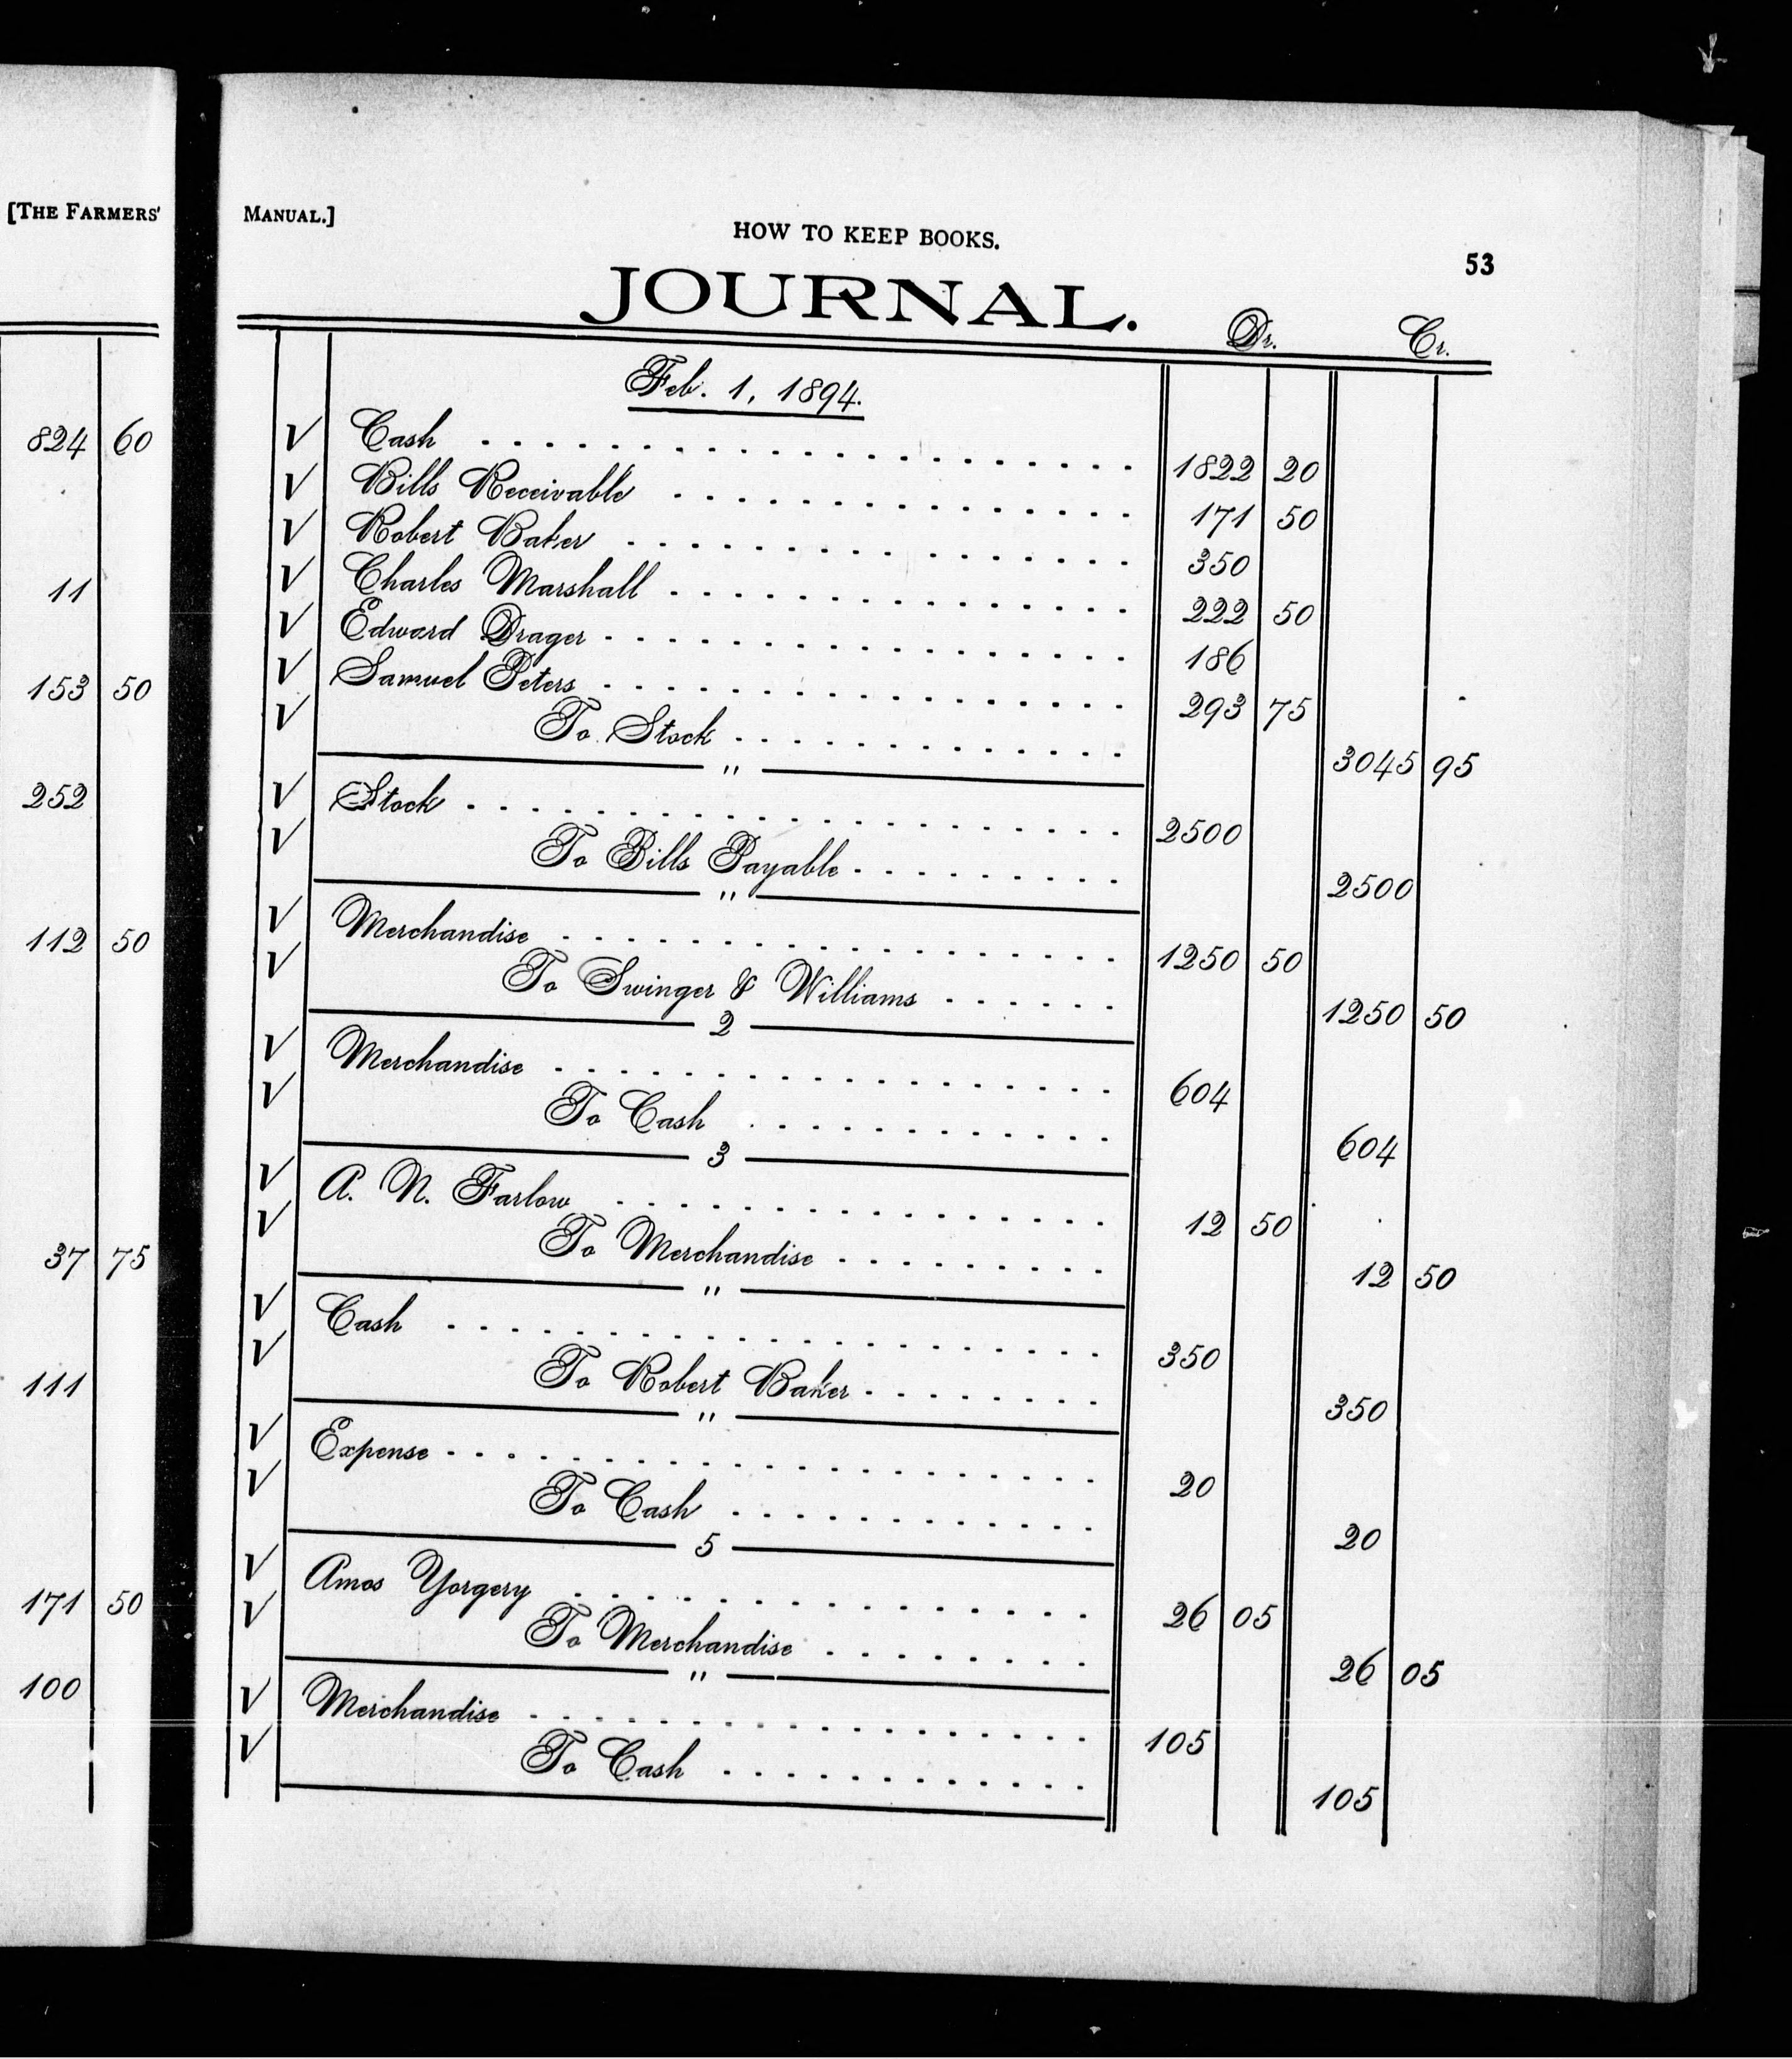 [THE FARMERS'
824 60
11
153 50
252
112 50
37 75
111
171 50
100
MANUAL.]
HOW TO KEEP BOOKS.
53
JOURNAL.
Dr. Cr.
Feb. 1, 1894.
√ Cash . . . . . . . . . . . . . . . . . . . . 1822 20
√ Bills Receivable . . . . . . . . . . . . . . . 171 50
√ Robert Baker . . . . . . . . . . . . . . . . 350
√ Charles Marshall . . . . . . . . . . . . . . . 222 50
√ Edward Drager . . . . . . . . . . . . . . . . . 186
√ Samuel Peters . . . . . . . . . . . . . . . . . 293 75
√ To Stock . . . . . . . . . . . . . 3045 95
"
√ Stock . . . . . . . . . . . . . . . . . . . . . 2500
√ To Bills Payable . . . . . . . . . 2500
"
√ Merchandise . . . . . . . . . . . . . . . . . . 1250 50
√ To Swinger & Williams . . . . . . 1250 50
2
√ Merchandise . . . . . . . . . . . . . . . . . . 604
√ To Cash . . . . . . . . . . . . 604
3
√ A. N. Farlow . . . . . . . . . . . . . . . . 12 50
√ To Merchandise . . . . . . . . . 12 50
"
√ Cash . . . . . . . . . . . . . . . . . . . . . 350
√ To Robert Baker . . . . . . . . 350
"
√ Expense . . . . . . . . . . . . . . . . . . . . . 20
√ To Cash . . . . . . . . . . . . 20
5
√ Amos Yorgery . . . . . . . . . . . . . . . . 26 05
√ To Merchandise . . . . . . . . . 26 05
"
√ Merchandise . . . . . . . . . . . . . . . . . . 105
√ To Cash . . . . . . . . . . . . 105